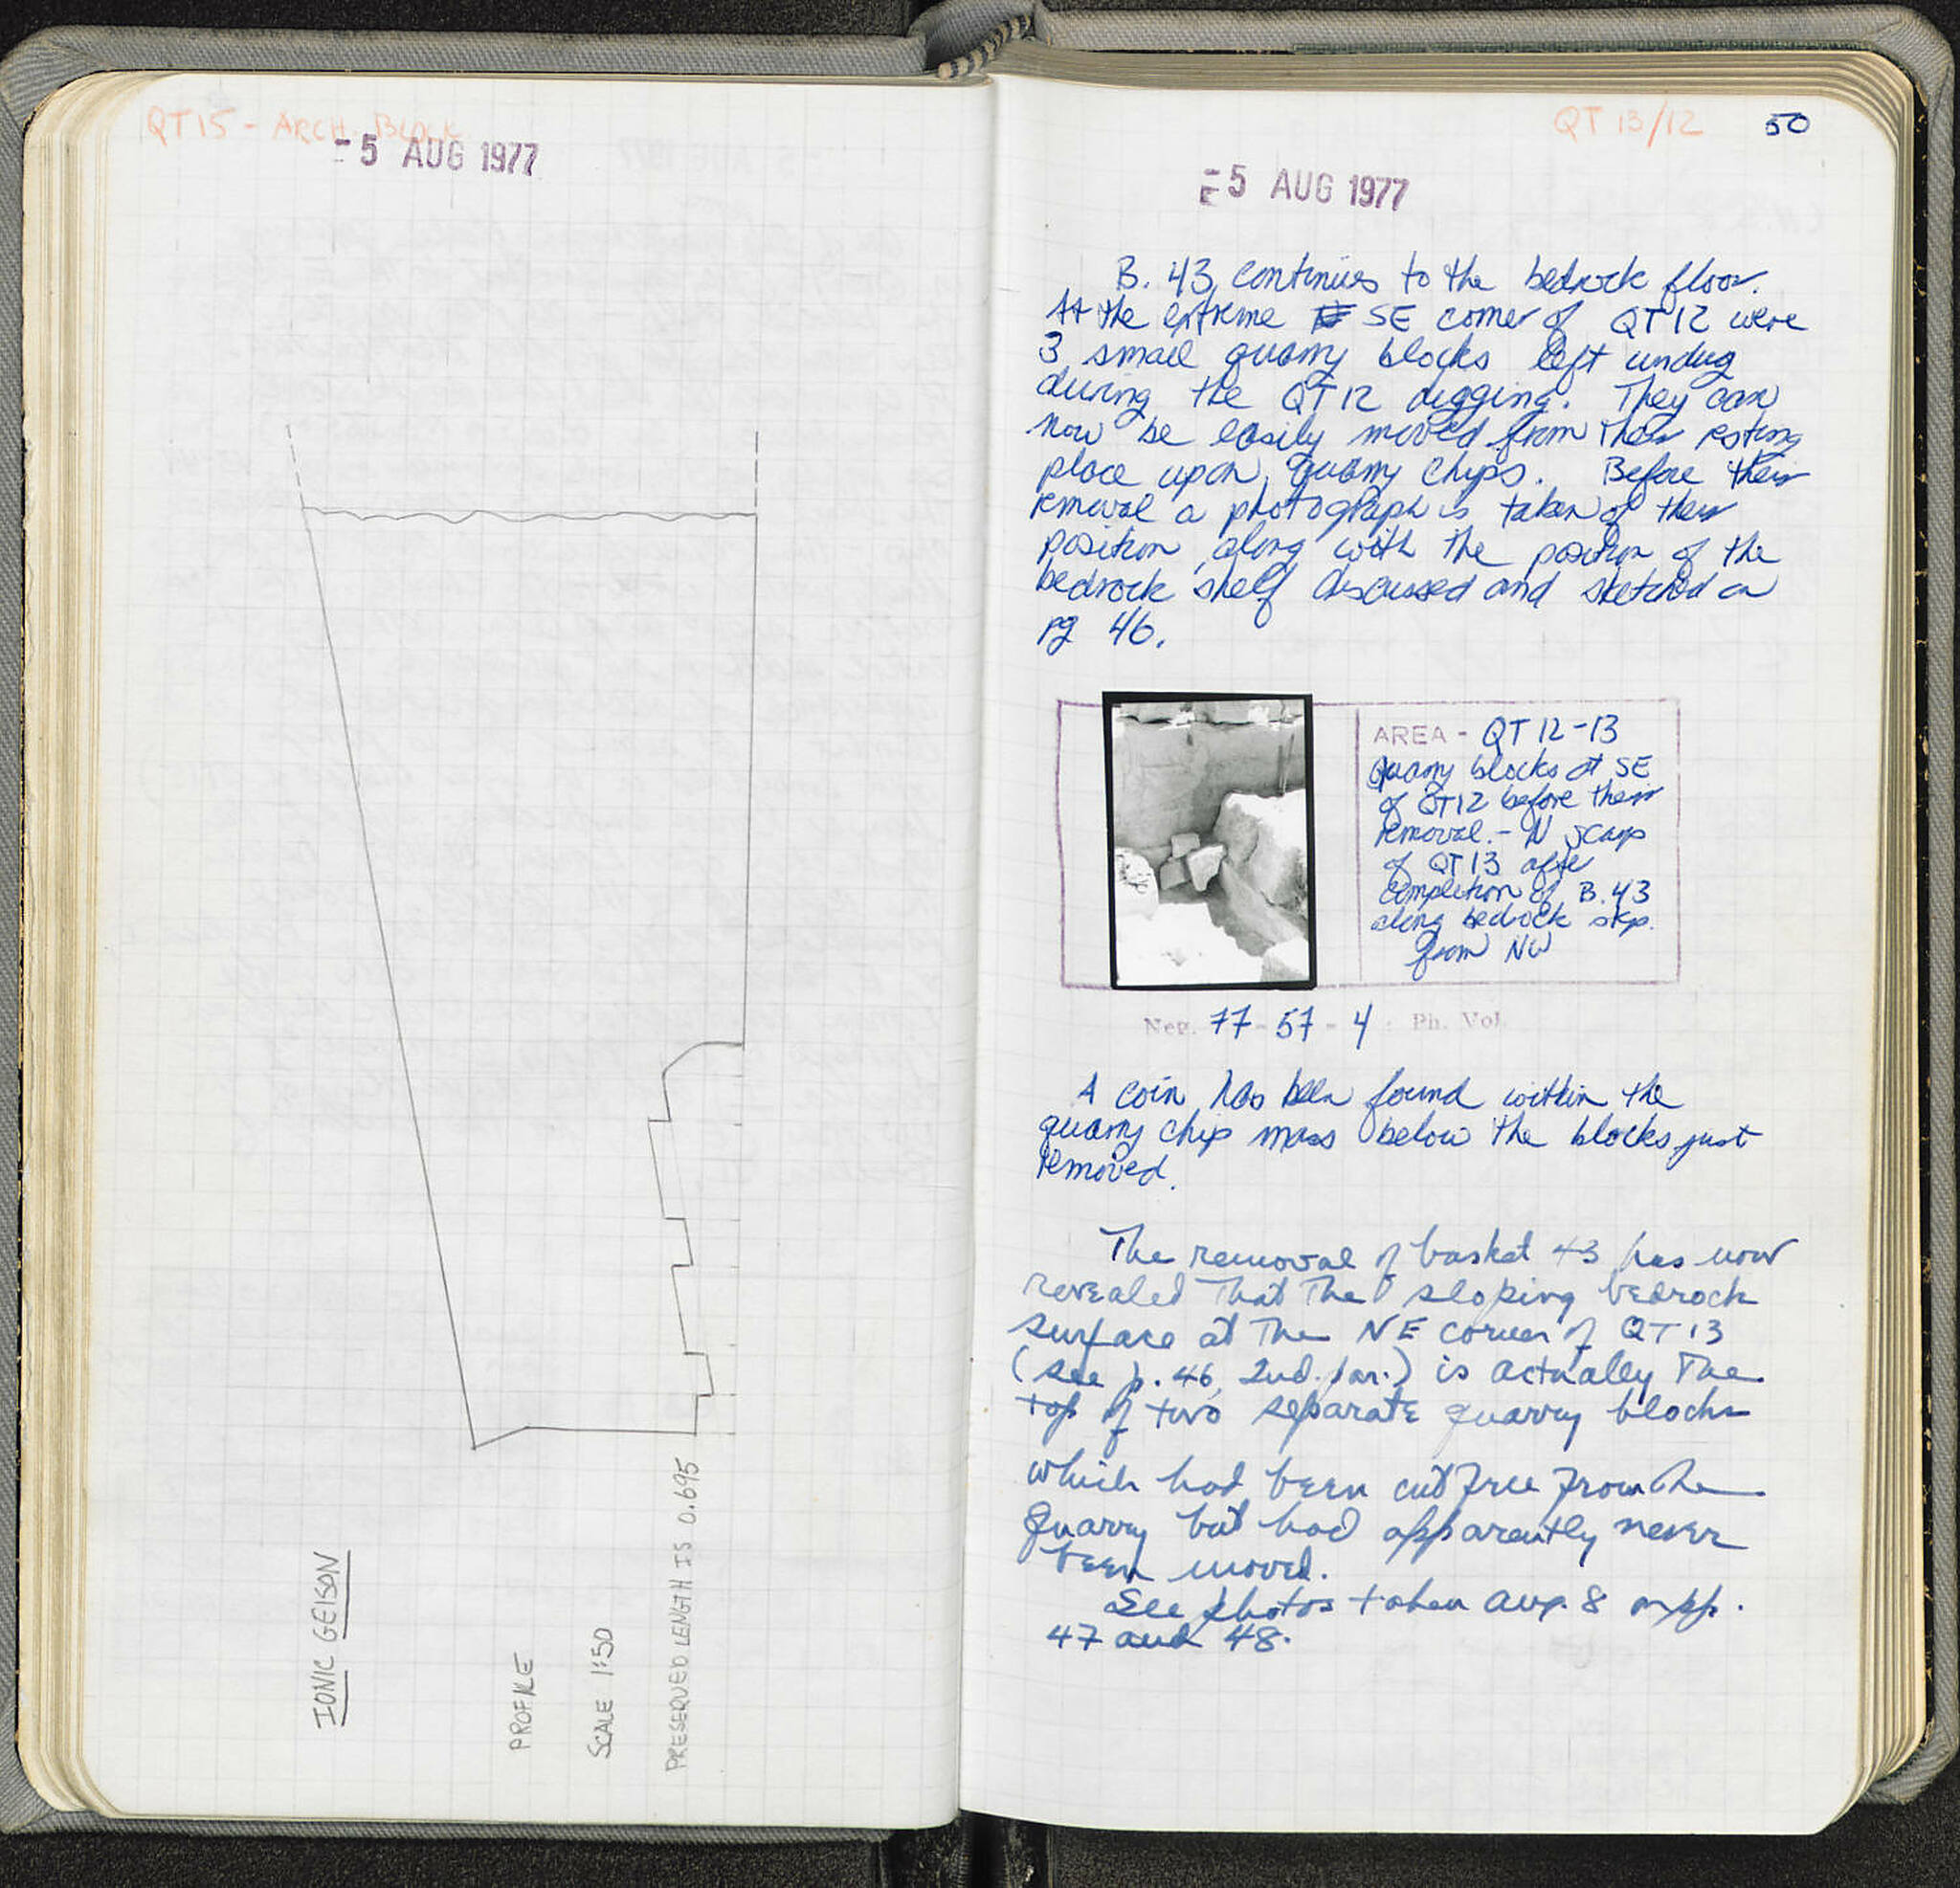 QT15 - ARCH. BLOCK
-5 AUG 1977
IONIC GEISON
PROFILE
SCALE 1:50
PRESERVED LENGTH IS 0.695
QT 13/12
50
-5 AUG 1977
B. 43 continues to the bedrock floor.
At the extreme SE corner of QT12 were
3 small quarry blocks left undug
during the QT12 digging. They can
now be easily moved from their resting
place upon quarry chips. Before their
removal a photograph is taken of their
position along with the position of the
bedrock shelf discussed and sketched on
pg 46.
AREA - QT 12-13
Quarry blocks at SE
of QT12 before their
removal. - N scarp
of QT13 after
completion of B. 43
along bedrock step.
from NW
Neg. 77-57-4 : Ph. Vol.
A coin has been found within the
quarry chip mass below the blocks just
removed.
The removal of basket 43 has now
revealed that the sloping bedrock
surface at the NE corner of QT13
(see p. 46, 2nd. par.) is actually the
top of two separate quarry blocks
which had been cut free from the
quarry but had apparently never
been moved.
See photos taken Aug. 8 on pp.
47 and 48.